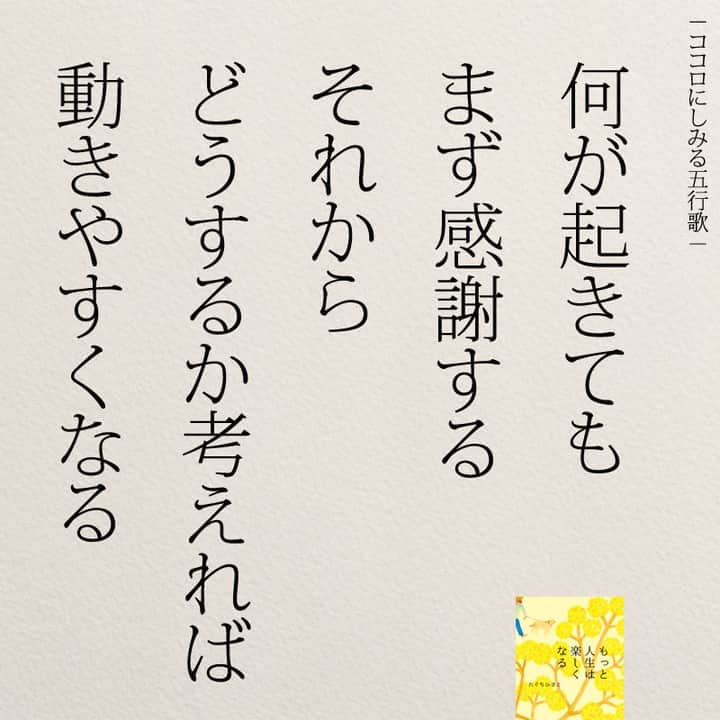 －ココロにしみる五行歌－
何が起きても
まず感謝する
それから
どうするか考えれば
動きやすくなる
もっと
人生は
楽しく
なる
たぐちひさと